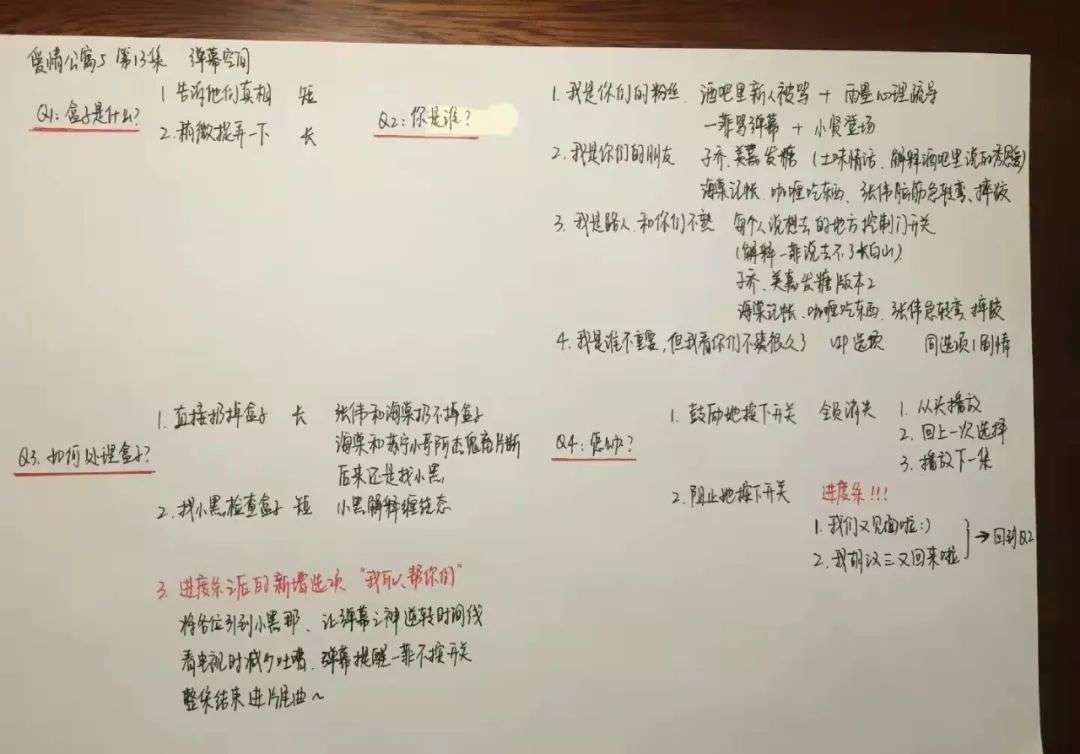 爱情公寓5 第13集 弹幕空间
Q1: 盒子是什么?
1 告诉他们真相 短
2. 稍微捉弄一下 长
Q2: 你是谁?
1. 我是你们的粉丝 酒吧里新人被骂 + 雨墨心理疏导
一菲骂弹幕 + 小贤登场
2. 我是你们的朋友 子乔、美嘉发糖 (土味情话、解释酒吧里说的秀恩爱)
海棠记帐、咖喱吃东西、张伟脑筋急转弯、摔跤
3. 我是路人、和你们不熟 每个人说想去的地方控制门开关
(解释一菲说去不了长白山)
子乔、美嘉发糖版本2
海棠记帐、咖喱吃东西、张伟急转弯、摔跤
4. 我是谁不重要,但我看你们不爽很久了 VIP选项 同选项1剧情
Q3. 如何处理盒子?
1. 直接扔掉盒子 长 张伟和海棠扔不掉盒子
海棠和苏宁小哥阿杰鬼畜片断
后来还是找小黑
2. 找小黑检查盒子 短 小黑解释缠绕态
3. 进度条之后的新增选项 "我可以帮你们"
将各位引到小黑那、让弹幕之神逆转时间线
看电视时减少吐嘈、弹幕提醒一菲不按开关
整集结束进片尾曲~
Q4: 怎么办?
1. 鼓励她按下开关 全员消失
1. 从头播放
2. 回上一次选择
3. 播放下一集
2. 阻止她按下开关 进度条!!!
1. 我们又见面啦:)
2. 我胡汉三又回来啦
→ 回到Q2